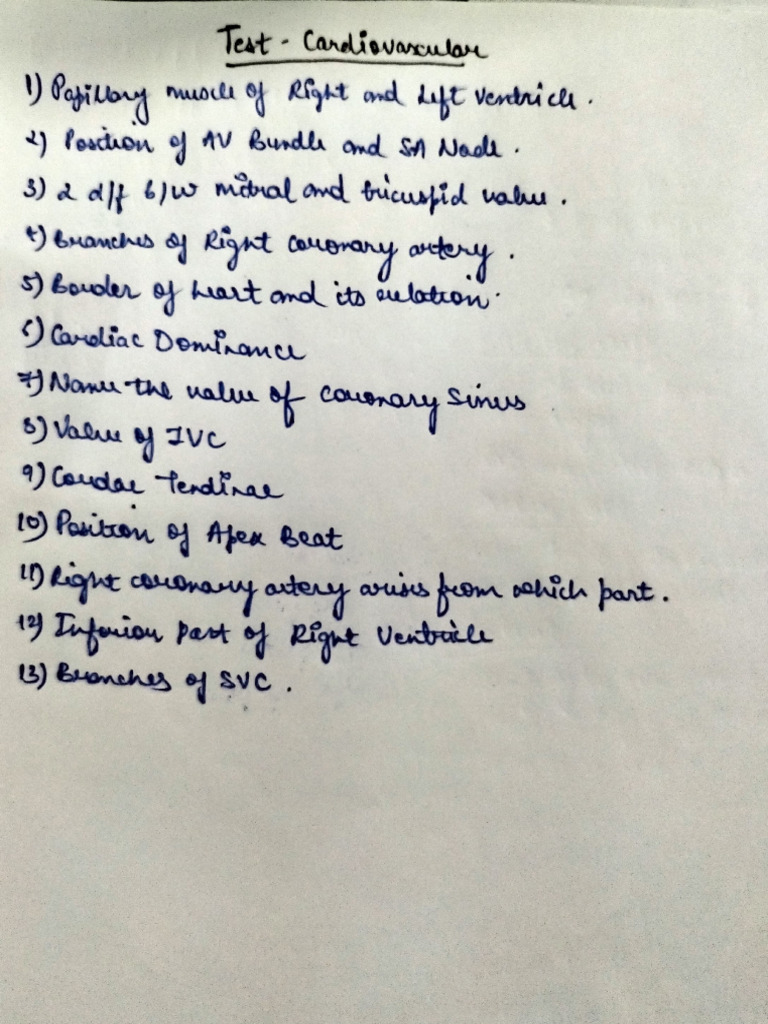 Test - Cardiovascular
1) Papillary muscle of Right and Left Ventricle.
2) Position of AV Bundle and SA Node.
3) 2 d/f b/w mitral and tricuspid valve.
4) Branches of Right coronary artery.
5) Border of heart and its relation.
6) Cardiac Dominance
7) Name the valve of coronary Sinus
8) Valve of IVC
9) Cordae Tendinae
10) Position of Apex Beat
11) Right coronary artery arises from which part.
12) Inferior Part of Right Ventricle
13) Branches of SVC.